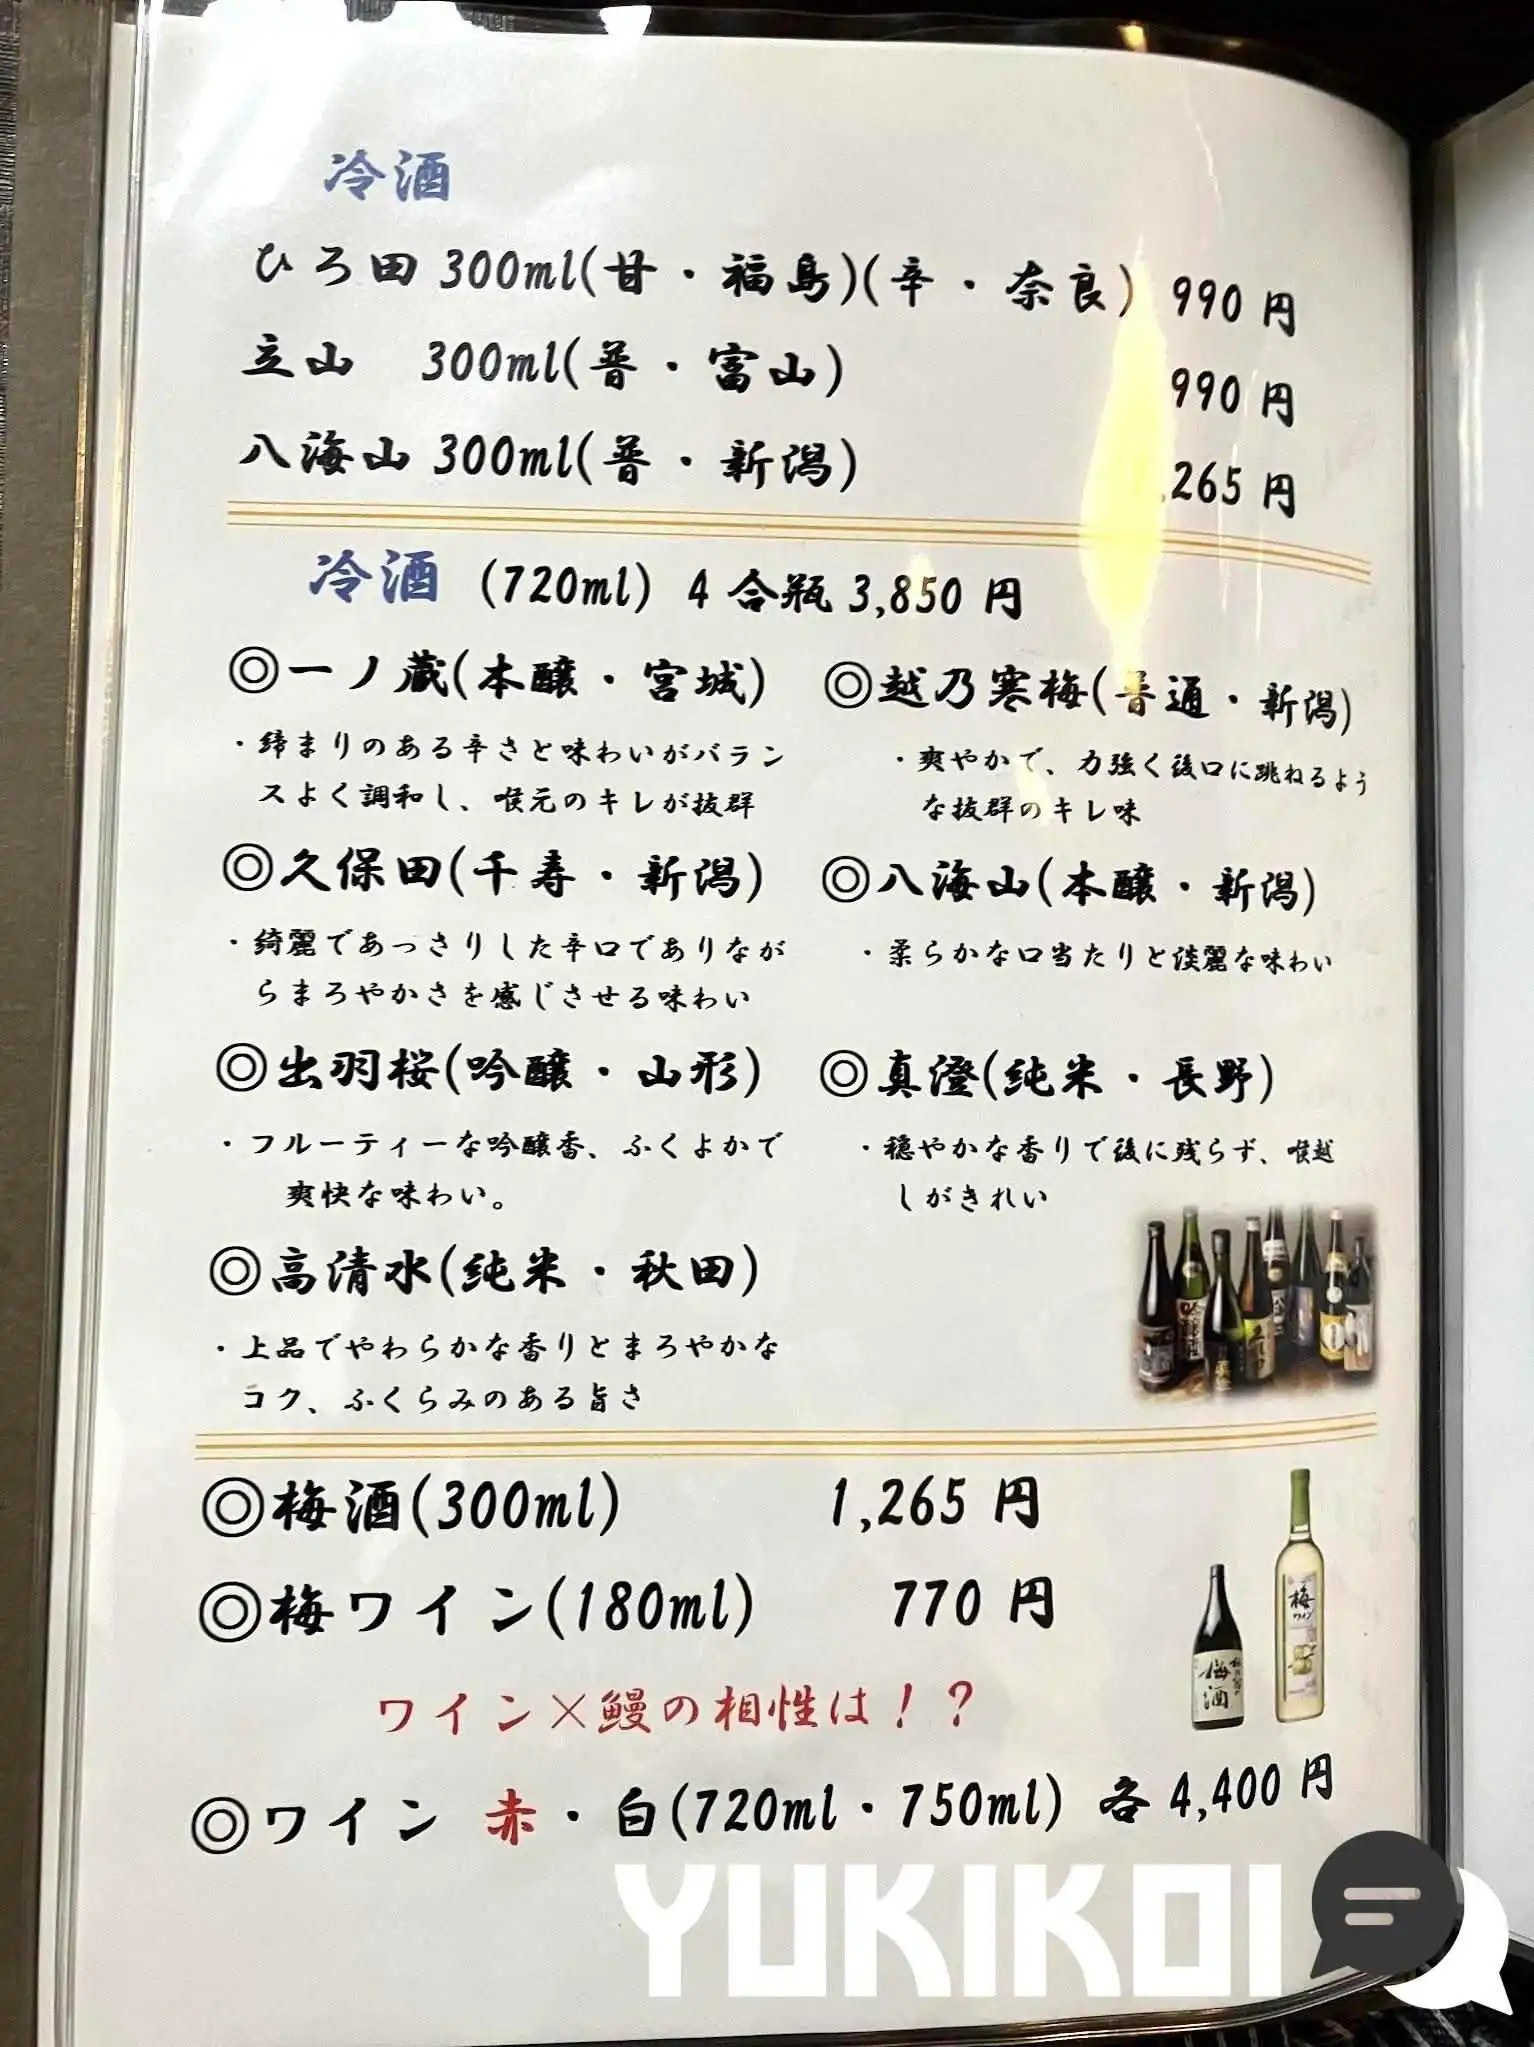 冷酒
ひろ田 300ml(甘・福島)(辛・奈良) 990 円
立山 300ml(普・富山) 990 円
八海山 300ml(普・新潟) ,265 円
冷酒 (720ml) 4 合瓶 3,850 円
◎一ノ蔵(本醸・宮城)
・締まりのある辛さと味わいがバラン
スよく調和し、喉元のキレが抜群
◎越乃寒梅(普通・新潟)
・爽やかで、力強く後口に跳ねるよう
な抜群のキレ味
◎久保田(千寿・新潟)
・綺麗であっさりした辛口でありなが
らまろやかさを感じさせる味わい
◎八海山(本醸・新潟)
・柔らかな口当たりと淡麗な味わい
◎出羽桜(吟醸・山形)
・フルーティーな吟醸香、ふくよかで
爽快な味わい。
◎真澄(純米・長野)
・穏やかな香りで後に残らず、喉越
しがきれい
◎高清水(純米・秋田)
・上品でやわらかな香りとまろやかな
コク、ふくらみのある旨さ
◎梅酒(300ml) 1,265 円
◎梅ワイン(180ml) 770 円
梅酒
梅
ワイン
ワイン×鰻の相性は！？
◎ワイン 赤・白(720ml・750ml) 各 4,400 円
YUKIKOI